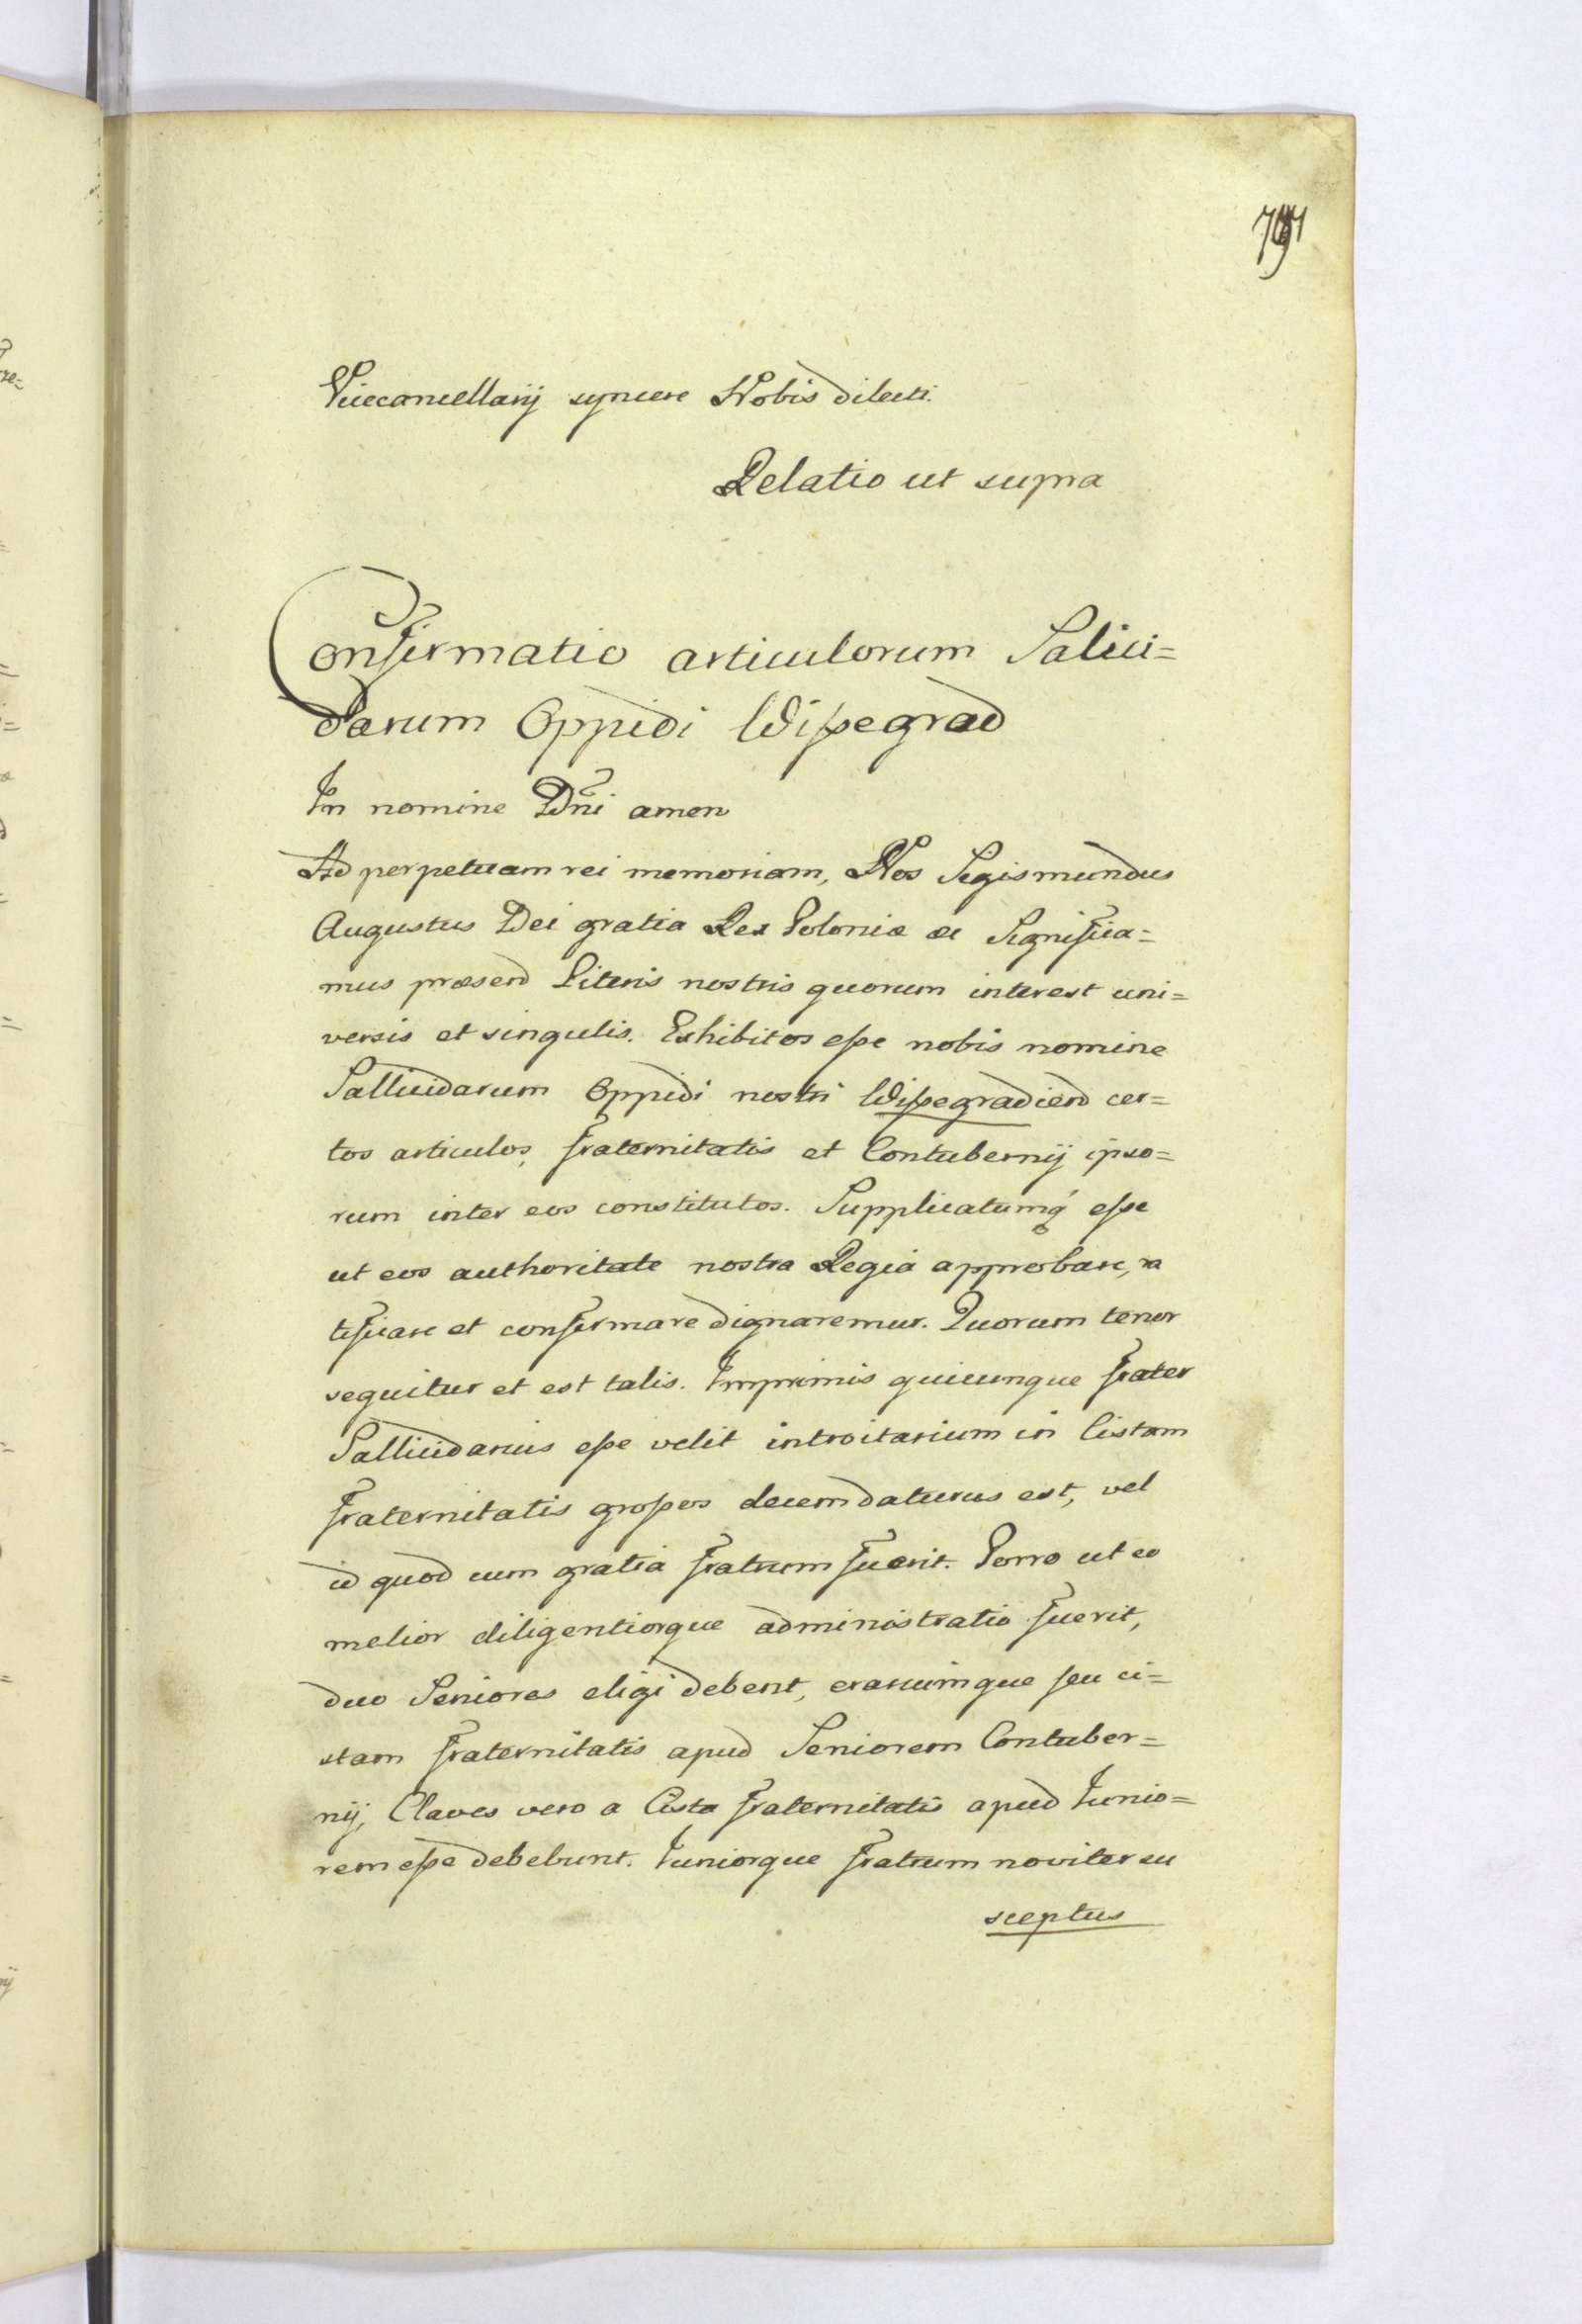 Vicecancellarij syncere Nobis dilecti.
Relatio ut supra
Confirmatio articulorum Salici=
darum Oppidi Wißegrad
In nomine Dni amen
Ad perpetuam rei memoriam, Nos Sigismundus
Augustus Dei gratia Rex Poloniæ &c Significa=
mus præsend Literis nostris quorum interest uni=
versis et singulis. Exhibitos eße nobis nomine
Sallicidarum Oppidi nostri Wißegradiend cer=
tos articulos, fraternitatis et Contubernij ipso=
rum inter eos constitutos. Supplicatumq́ eße
ut eos authoritate nostra Regia approbare, ra
tificare et confirmare dignaremur. Quorum tenor
sequitur et est talis. Imprimis quicunque frater
Sallicidarius eße velit introitarium in Cistam
fraternitatis großos decem daturus est, vel
id quod cum gratia fratrum fuerit. Porro ut eo
melior diligentiorque administratio fuerit,
duo Seniores eligi debent, erariumque seu ci=
stam fraternitatis apud Seniorem Contuber=
nij, Claves vero a Cista fraternitatis apud Iunio=
rem eße debebunt. Iuniorque fratrum noviter su
sceptus